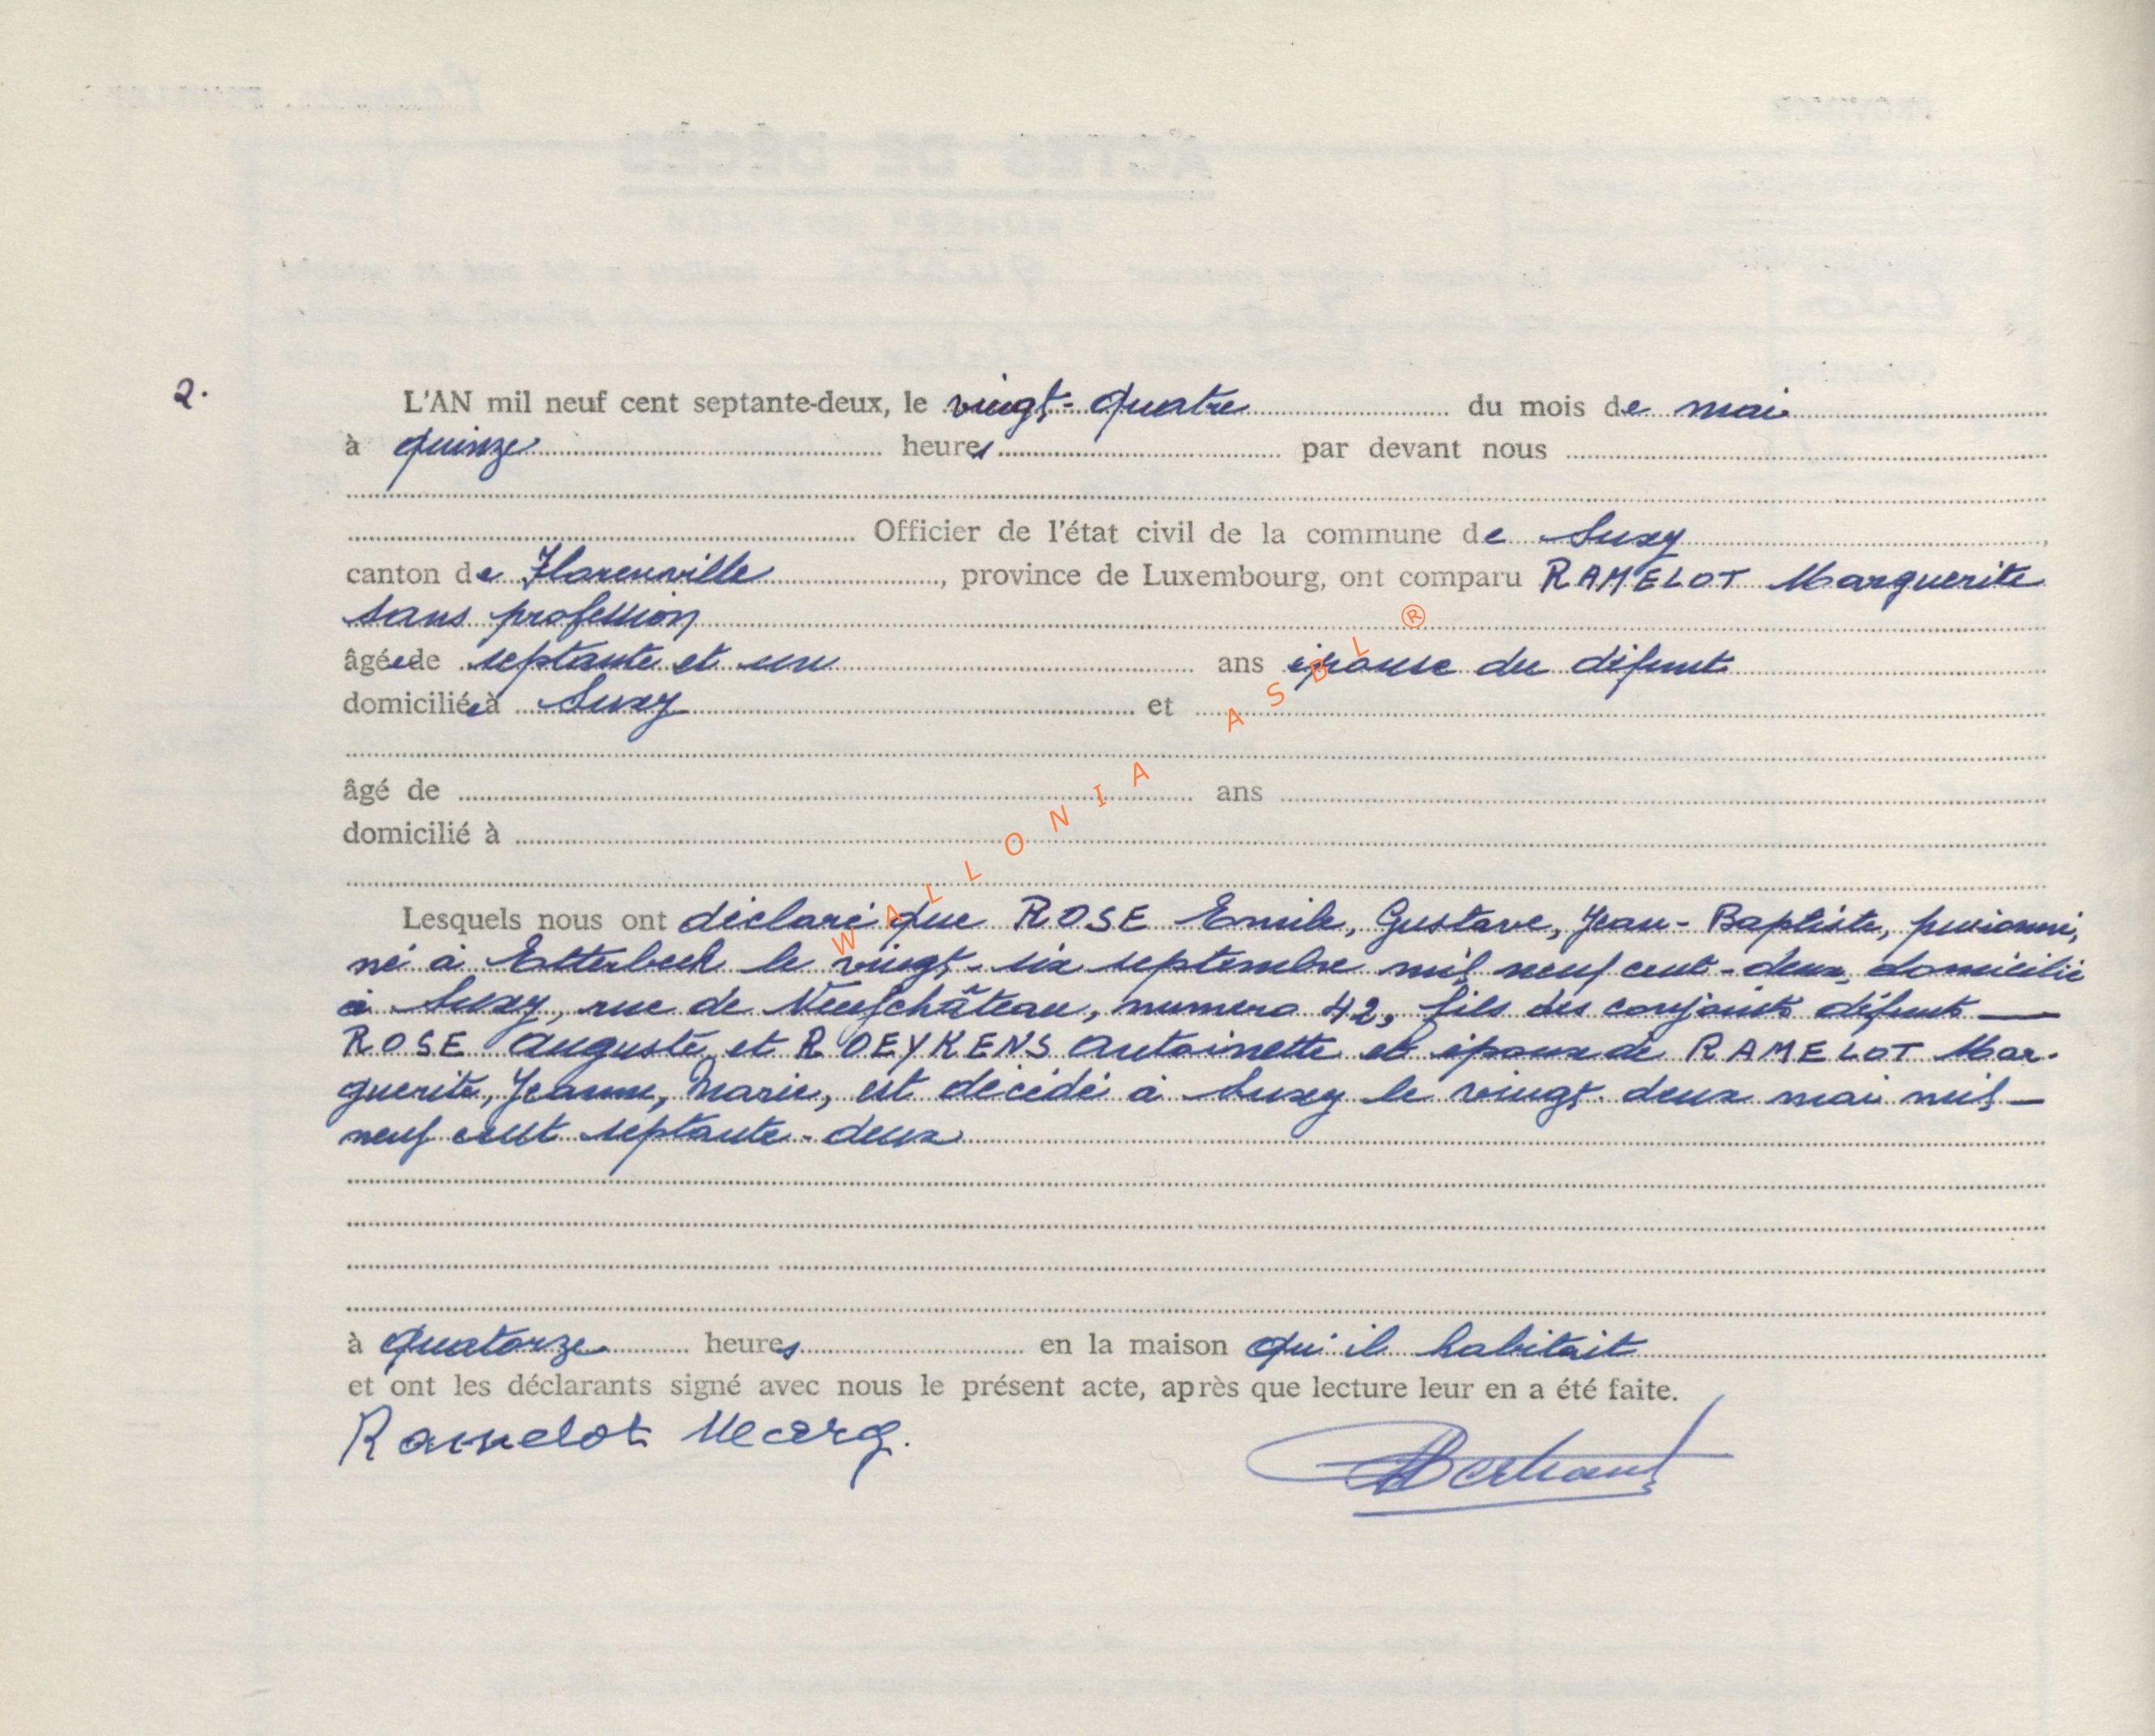 2.
L'AN mil neuf cent septante-deux, le vingt-quatre du mois de mai
à quinze heures par devant nous
Officier de l'état civil de la commune de Suxy,
canton de Florenville, province de Luxembourg, ont comparu RAMELOT Marguerite
sans profession
âgée de septante et un ans épouse du défunt
domiciliée à Suxy et
âgé de ans
domicilié à
Lesquels nous ont déclaré que ROSE Emile, Gustave, Jean-Baptiste, pensionné,
né à Etterbeek le vingt-six septembre mil neuf cent-deux, domicilié
à Suxy, rue de Neufchâteau, numero 42, fils des conjoints défunts —
ROSE Auguste et ROEYKENS Antoinette et époux de RAMELOT Mar-
guerite, Jeanne, Marie, est décédé à Suxy le vingt-deux mai mil-
neuf cent septante-deux
à quatorze heures en la maison qu'il habitait
et ont les déclarants signé avec nous le présent acte, après que lecture leur en a été faite.
Ramelot Marg.
Bertrand
WALLONIA ASBL ®